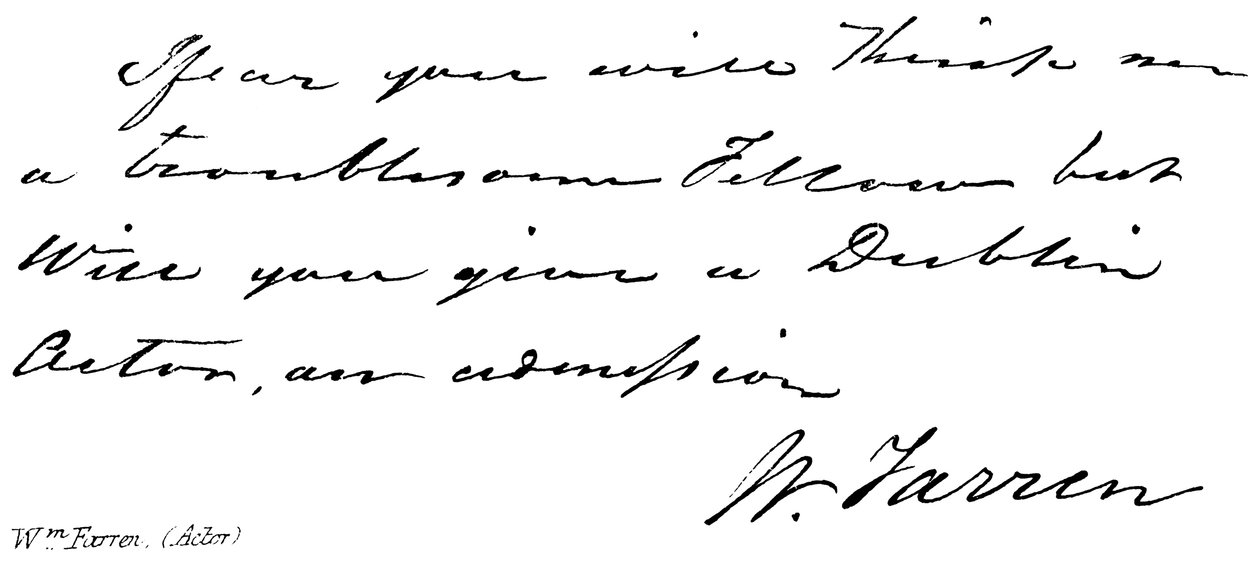 I fear you will Think me
a troublesome Fellow but
Will you give a Dublin
Actor, an admission
W. Farren
Wm Farren. (Actor)